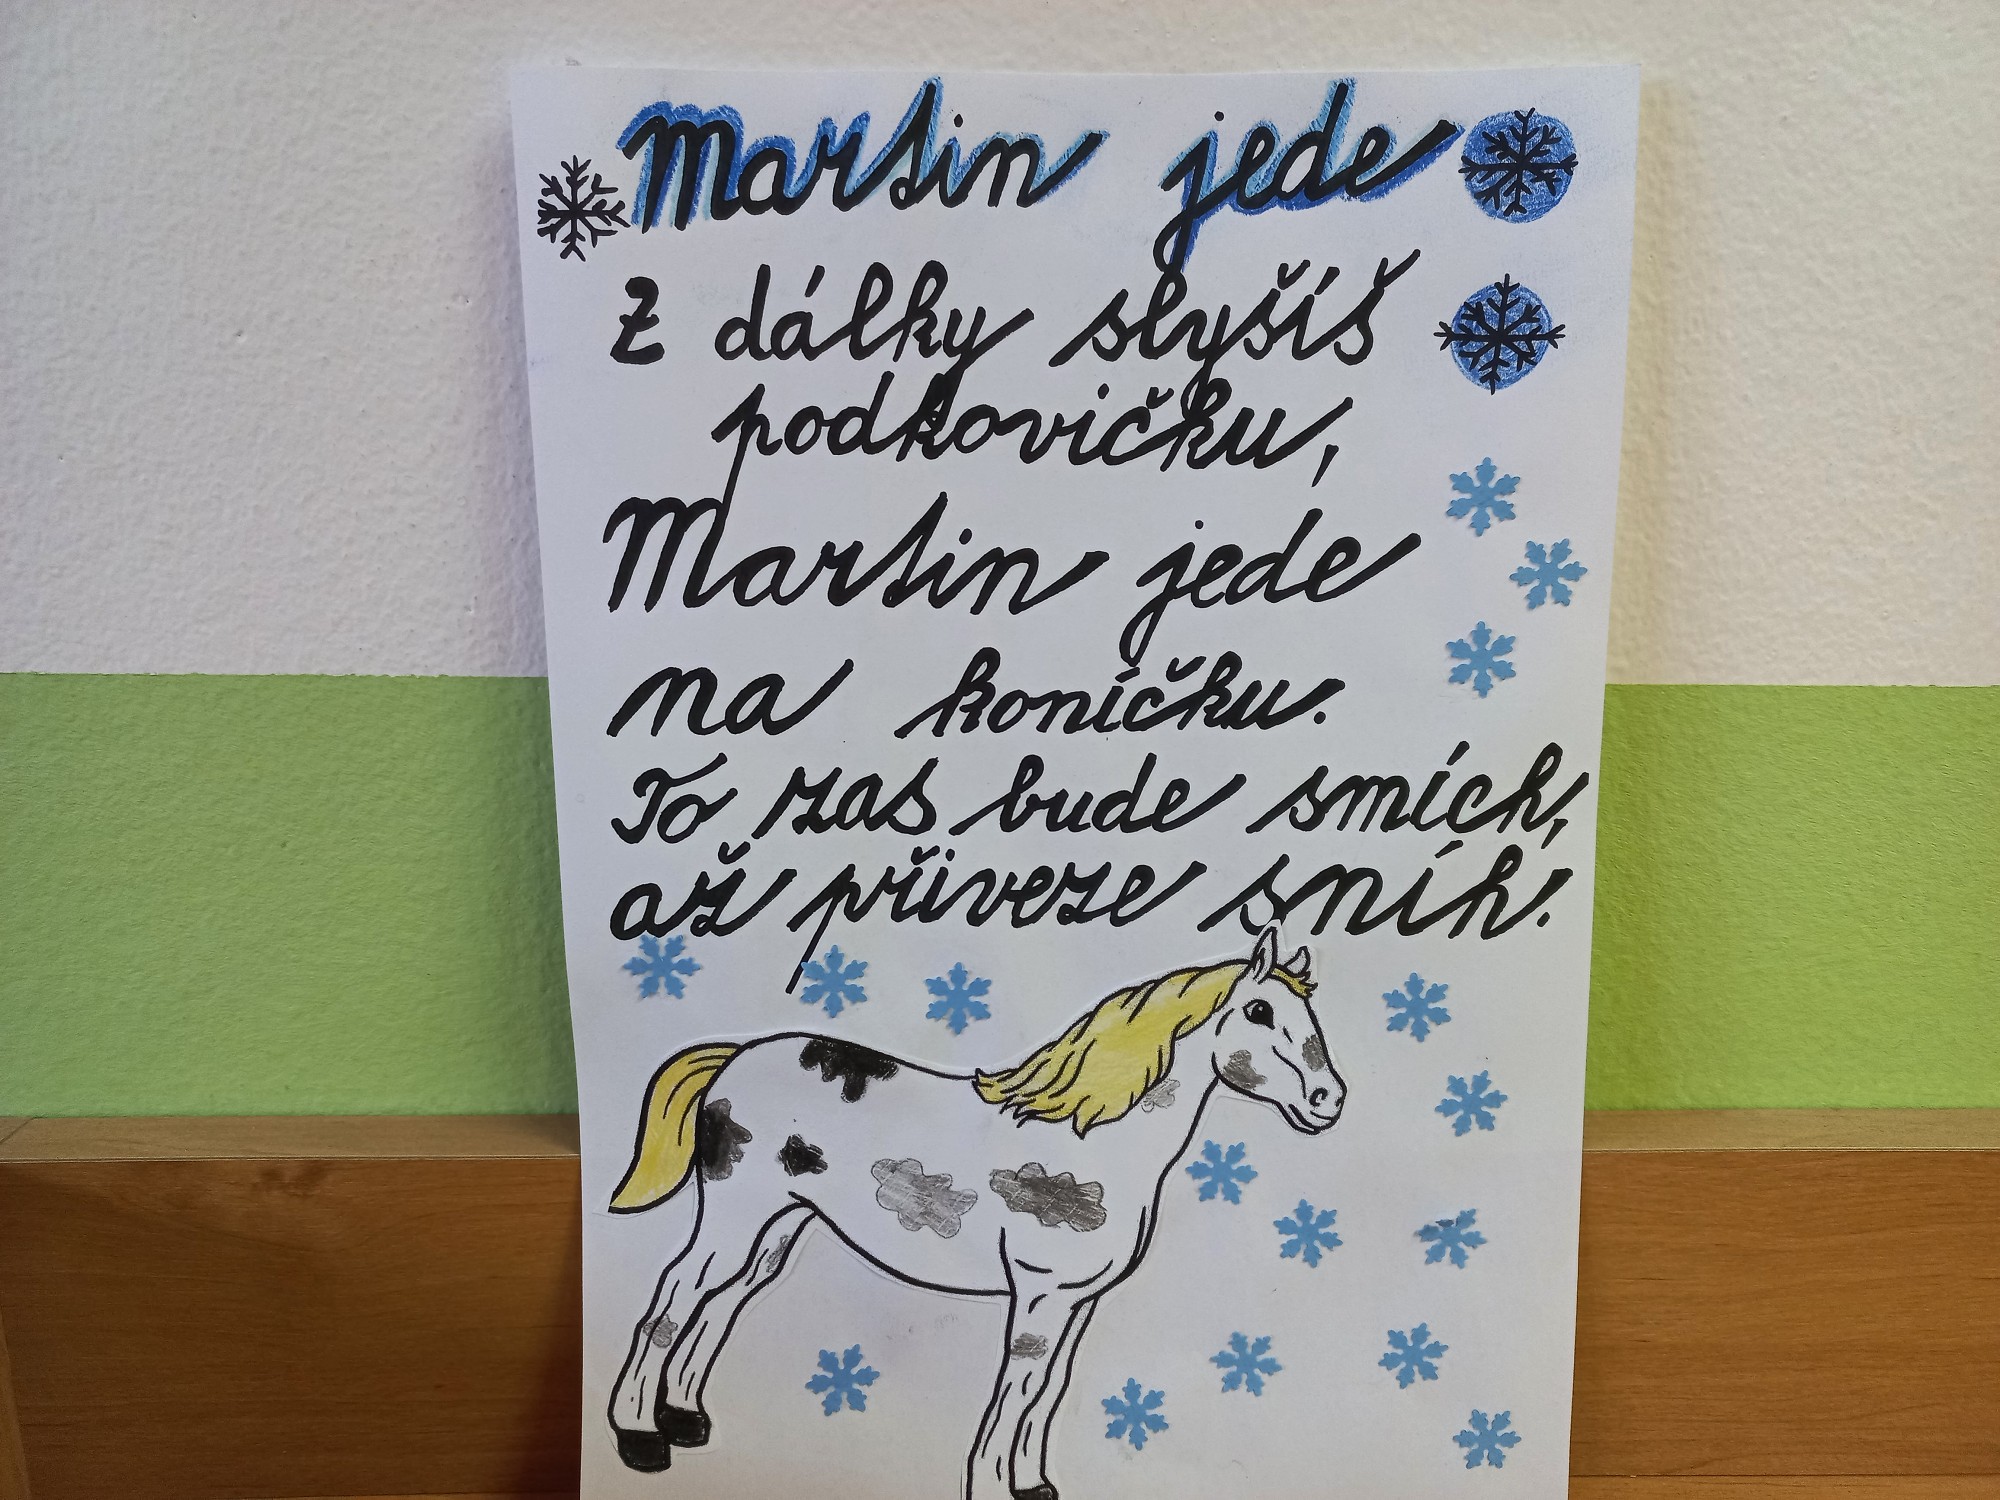 Martin jede
Z dálky slyšíš
podkovičku,
Martin jede
na koníčku.
To zas bude smích,
až přiveze sníh.